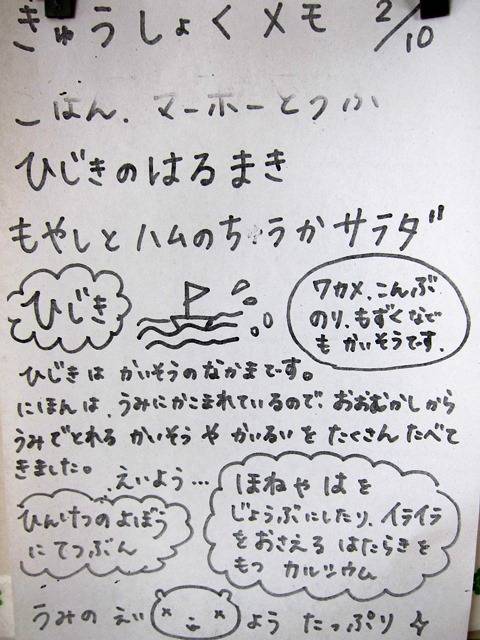 きゅうしょくメモ 2/10
ごはん、マーボーどうふ
ひじきのはるまき
もやしとハムのちゅうかサラダ
ひじき
ワカメ、こんぶ
のり、もずくなど
も かいそうです。
ひじきは かいそうのなかまです。
にほんは、うみにかこまれているので、おおむかしから
うみでとれる かいそう や かいるい を たくさん たべて
きました。
えいよう…
ひんけつのよぼう
に てつぶん
ほねや はを
じょうぶにしたり、イライラ
をおさえる はたらきを
もつ カルシウム
うみの えいよう たっぷり